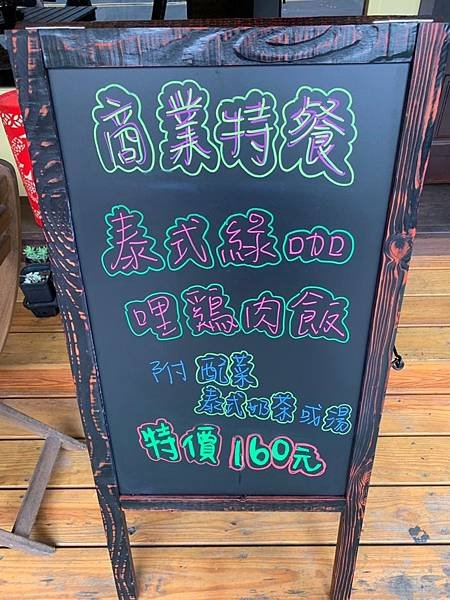 商業特餐
泰式綠咖
哩鷄肉飯
附 配菜
泰式奶茶或湯
特價160元